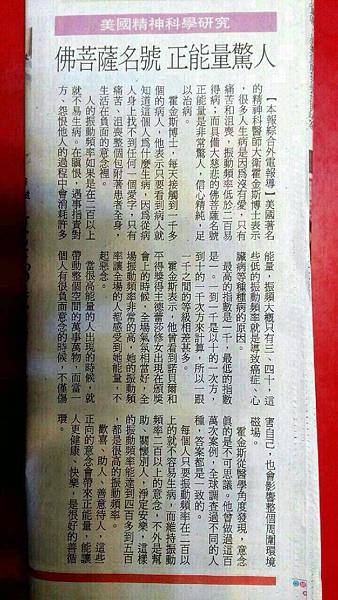 美國精神科學研究
佛菩薩名號 正能量驚人
【本報綜合外電報導】美國著名
的精神科醫師大衛霍金斯博士表示
，很多人生病是因為沒有愛，只有
痛苦和沮喪，振動頻率低於二百易
得病；而具備大慈悲的佛菩薩名號
正能量是非常驚人，信心精純，足
以治病。
霍金斯博士，每天接觸到一千多
個的病人，他表示只要看到病人就
知道這個人為什麼生病，因為從病
人身上找不到任何一個愛字，只有
痛苦、沮喪整個包附著患者全身，
生活在負面的意念裡。
人的振動頻率如果是在二百以上
就不易生病。在瞋恨，遇事指責對
方、怨恨他人的過程中會消耗許多
能量，振頻大概只有三、四十，這
些低的振動頻率就是導致癌症、心
臟病等種種病的原因。
最高的指數是一千，最低的指數
是一。到一千是以十的一次方，
到十的一千次方來計算，所以一跟
一千之間的等級相差甚多。
霍金斯表示，他曾看到諾貝爾和
平得獎得主德蕾莎修女出現在頒獎
會上的時候，全場氣氛相當好，全
場振動頻率非常的高，她的振動頻
率讓全場的人都感受到她能量，不
起惡念。
當很高能量的人出現的時候，就
帶動整個空間的萬事萬物，而當一
個人有很負面意念的時候，不僅傷
害自己，也會影響整個周圍環境
磁場。
霍金斯從醫學角度發現，意念
真的是不可思議。他曾做過這百
萬次案例，全球調查過不同的人
種，答案都是一致的。
每個人只要振動頻率在二百以
上的就不容易生病，而維持振動
頻率二百以上的意念，不外是幫
助、關懷別人，淨定安樂，這樣
的振動頻率能達到四百多到五百
，都是很高的振動頻率。
歡喜、助人、善意待人，這些
正向的意念會帶來正能量，能讓
人更健康、快樂，是很好的善循
環。